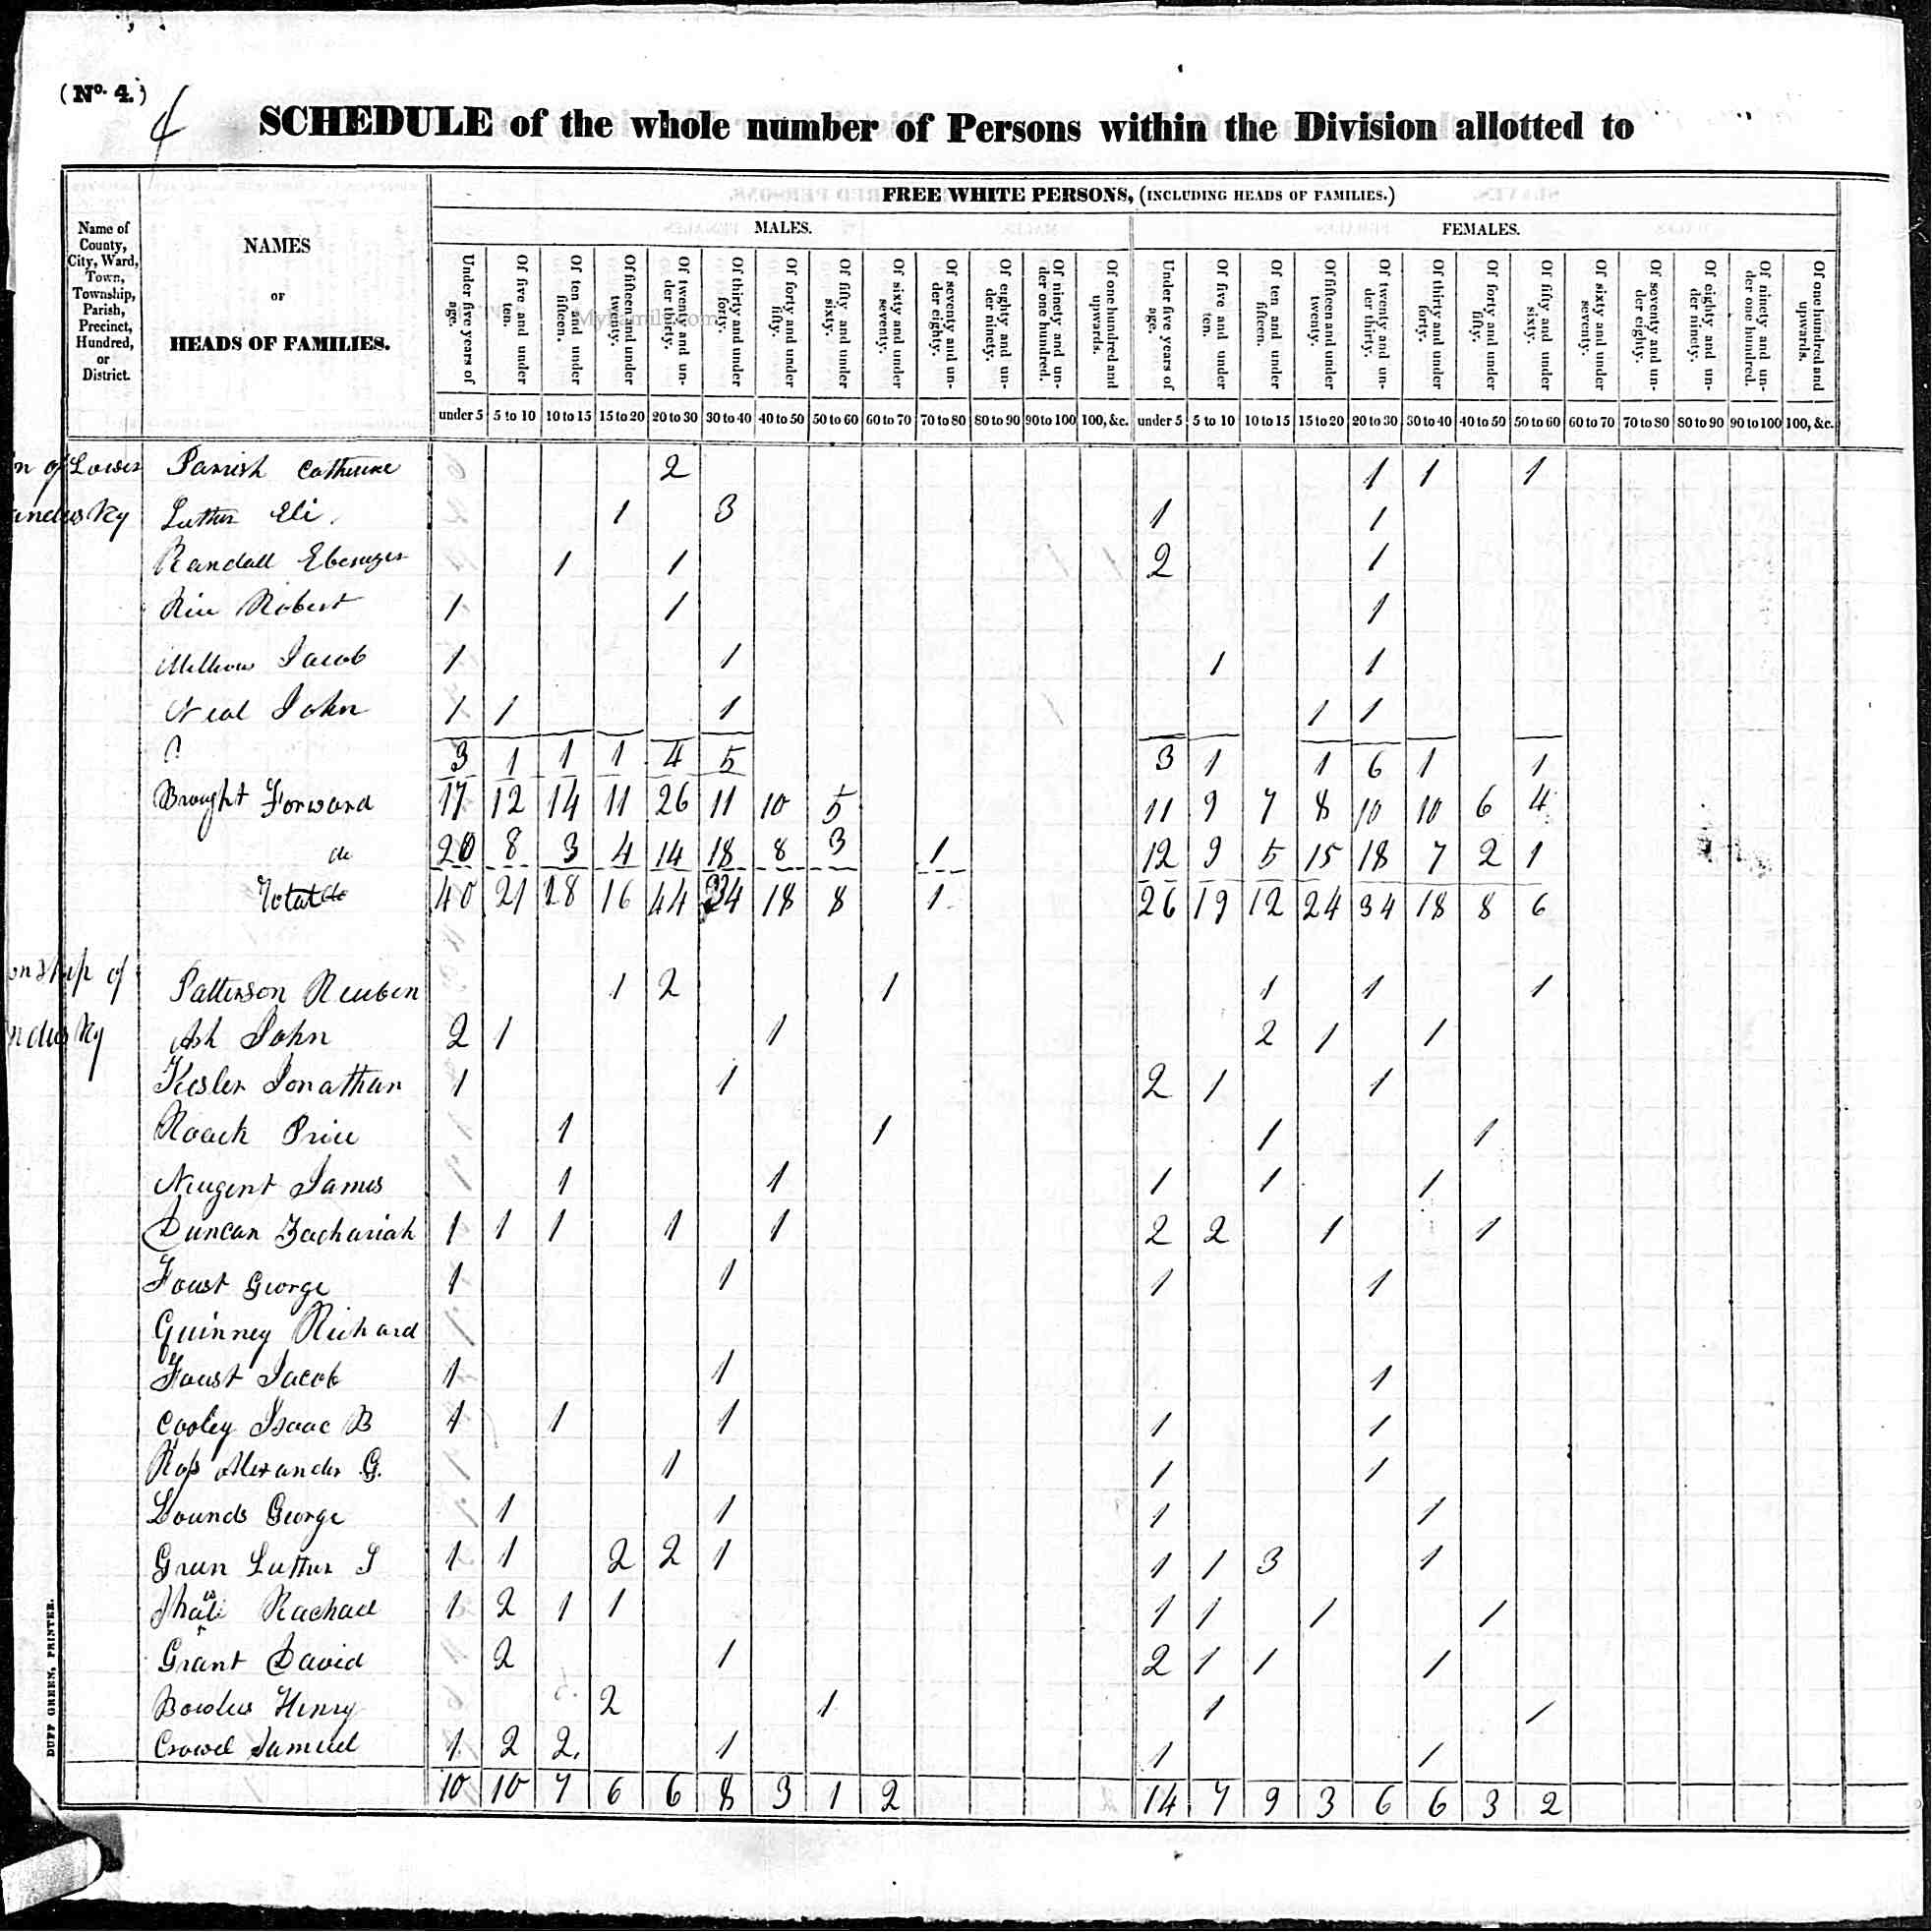 (No. 4.)
4
SCHEDULE of the whole number of Persons within the Division allotted to
FREE WHITE PERSONS, (INCLUDING HEADS OF FAMILIES.)
MALES. FEMALES.
Name of County, City, Ward, Town, Township, Parish, Precinct, Hundred, or District.
NAMES
OF
HEADS OF FAMILIES.
Under five years of age. Of five and under ten. Of ten and under fifteen. Of fifteen and under twenty. Of twenty and under thirty. Of thirty and under forty. Of forty and under fifty. Of fifty and under sixty. Of sixty and under seventy. Of seventy and under eighty. Of eighty and under ninety. Of ninety and under one hundred. Of one hundred and upwards. Under five years of age. Of five and under ten. Of ten and under fifteen. Of fifteen and under twenty. Of twenty and under thirty. Of thirty and under forty. Of forty and under fifty. Of fifty and under sixty. Of sixty and under seventy. Of seventy and under eighty. Of eighty and under ninety. Of ninety and under one hundred. Of one hundred and upwards.
under 5 5 to 10 10 to 15 15 to 20 20 to 30 30 to 40 40 to 50 50 to 60 60 to 70 70 to 80 80 to 90 90 to 100 100, &c. under 5 5 to 10 10 to 15 15 to 20 20 to 30 30 to 40 40 to 50 50 to 60 60 to 70 70 to 80 80 to 90 90 to 100 100, &c.
n of Lower Parrish Catherine 2 1 1 1
andusky Luther Eli 1 3 1 1
Randall Ebenezer 1 1 2 1
Rice Robert 1 1 1
Jacob 1 1 1 1
Neal John 1 1 1 1 1
3 1 1 1 4 5 3 1 1 6 1 1
Brought Forward 17 12 14 11 26 11 10 5 11 9 7 8 10 10 6 4
do 20 8 3 4 14 18 8 3 1 12 9 5 15 18 7 2 1
Total do 40 21 18 16 44 34 18 8 1 26 19 12 24 34 18 8 6
onship of Patterson Reuben 1 2 1 1 1 1
ndusky Ash John 2 1 1 2 1 1
Kesler Jonathan 1 1 2 1 1
Roack Price 1 1 1 1
Neugent James 1 1 1 1 1
Duncan Zachariah 1 1 1 1 1 2 2 1 1
Foust George 1 1 1 1
Guinney Richard
Foust Jacob 1 1 1
Cooley Isaac B 1 1 1 1 1
Ross Alexander G. 1 1 1
Lounds George 1 1 1 1
Green Luther I 1 1 2 2 1 1 1 3 1
Rachael 1 2 1 1 1 1 1 1
Grant David 2 1 2 1 1 1
Bowlus Henry 2 1 1 1
Crowel Samuel 1 2 2 1 1 1
10 10 7 6 6 8 3 1 2 14 7 9 3 6 6 3 2
DUFF GREEN, PRINTER.